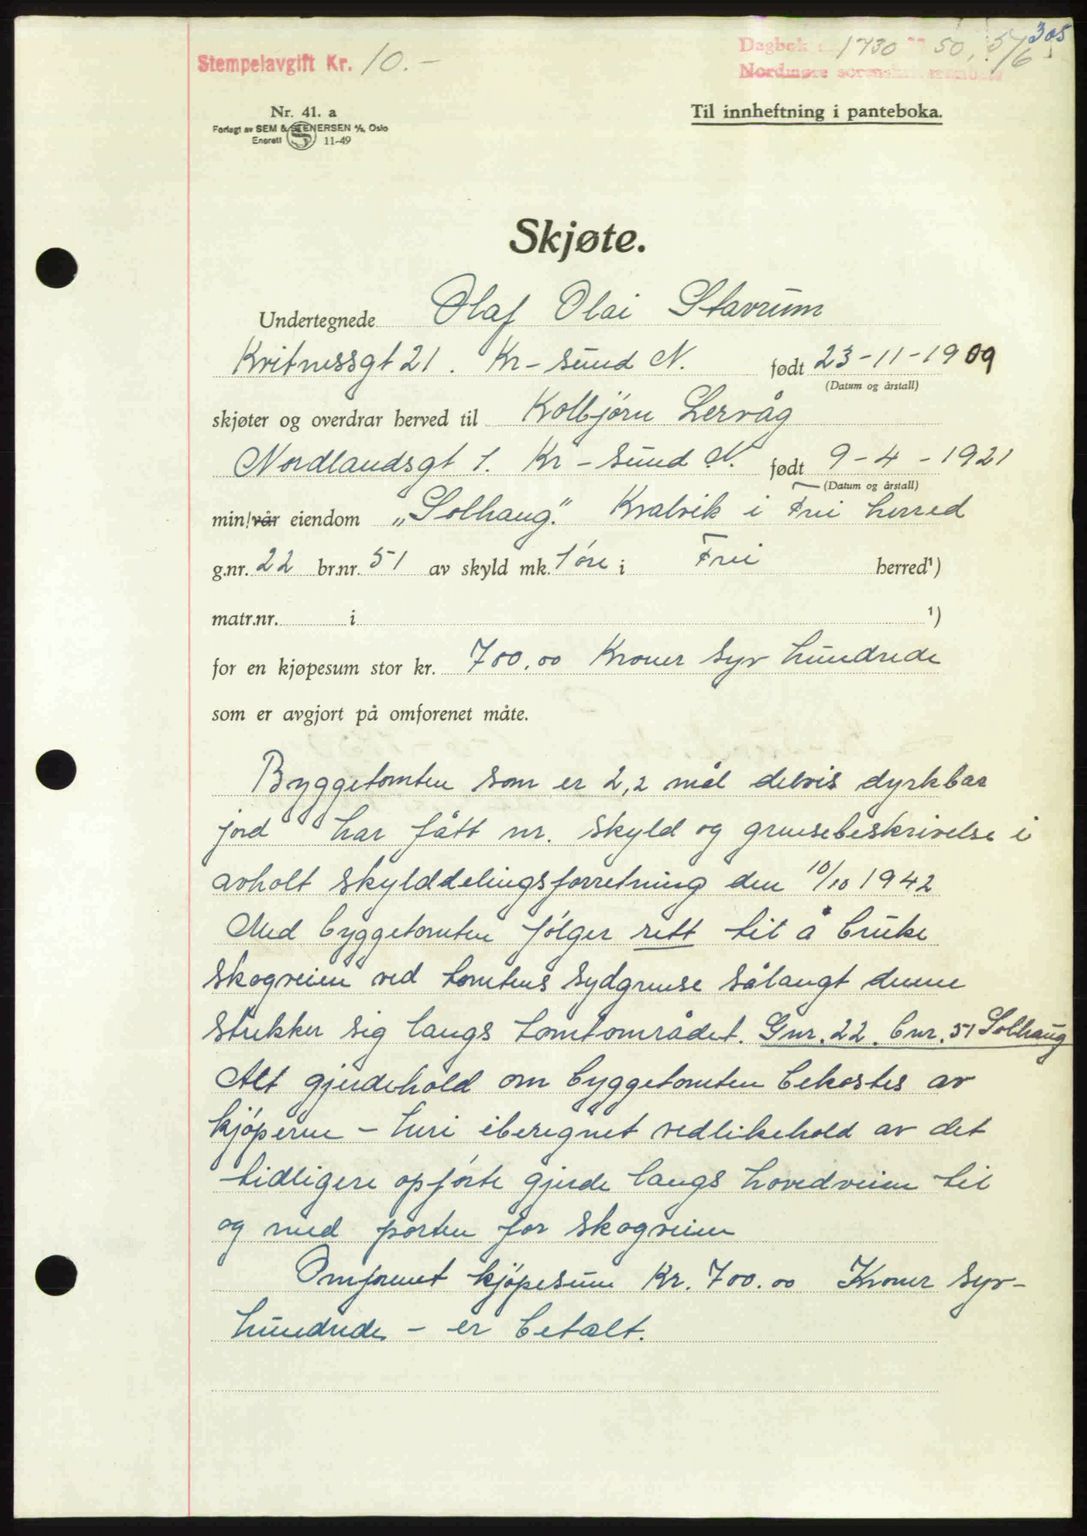 305
Stempelavgift Kr. 10.-
Dagbok 1730 50, 5/6
Nordmøre sorenskriverembete
Nr. 41. a
Forlagt av SEM & STENERSEN A/S, Oslo
Enerett 11-49
Til innheftning i panteboka.
Skjøte.
Undertegnede Olaf Olai Stavrum
Kvitnessgt 21. Kr-sund N. født 23-11-1909
(Datum og årstall)
skjøter og overdrar herved til Kolbjörn Lervåg
Nordlandsgt 1. Kr-sund N. født 9-4-1921
(Datum og årstall)
min/vår eiendom „Solhaug." Kvalvik i Frei herred
g.nr. 22 br.nr. 51 av skyld mk. 1 øre i Frei herred¹)
matr.nr. i ¹)
for en kjøpesum stor kr. 700,00 Kroner syv hundrede
som er avgjort på omforenet måte.
Byggetomten som er 2,2 mål delvis dyrkbar
jord har fått nr. skyld og grensebeskrivelse i
avholt skylddelingsforretning den 10/10 1942
Med byggetomten følger rett til å bruke
skogveien ved tomtens sydgrense sålangt denne
strekker sig langs tomtområdet. Gnr. 22. bnr. 51 Solhaug
Alt gjerdehold om byggetomten bekostes av
kjöperen - heri iberegnet vedlikehold av det
tidligere opförte gjerde langs hovedveien til
og med porten for skogveien
Omforenet kjöpesum Kr. 700.00 Kroner syv-
hundrede - er betalt.